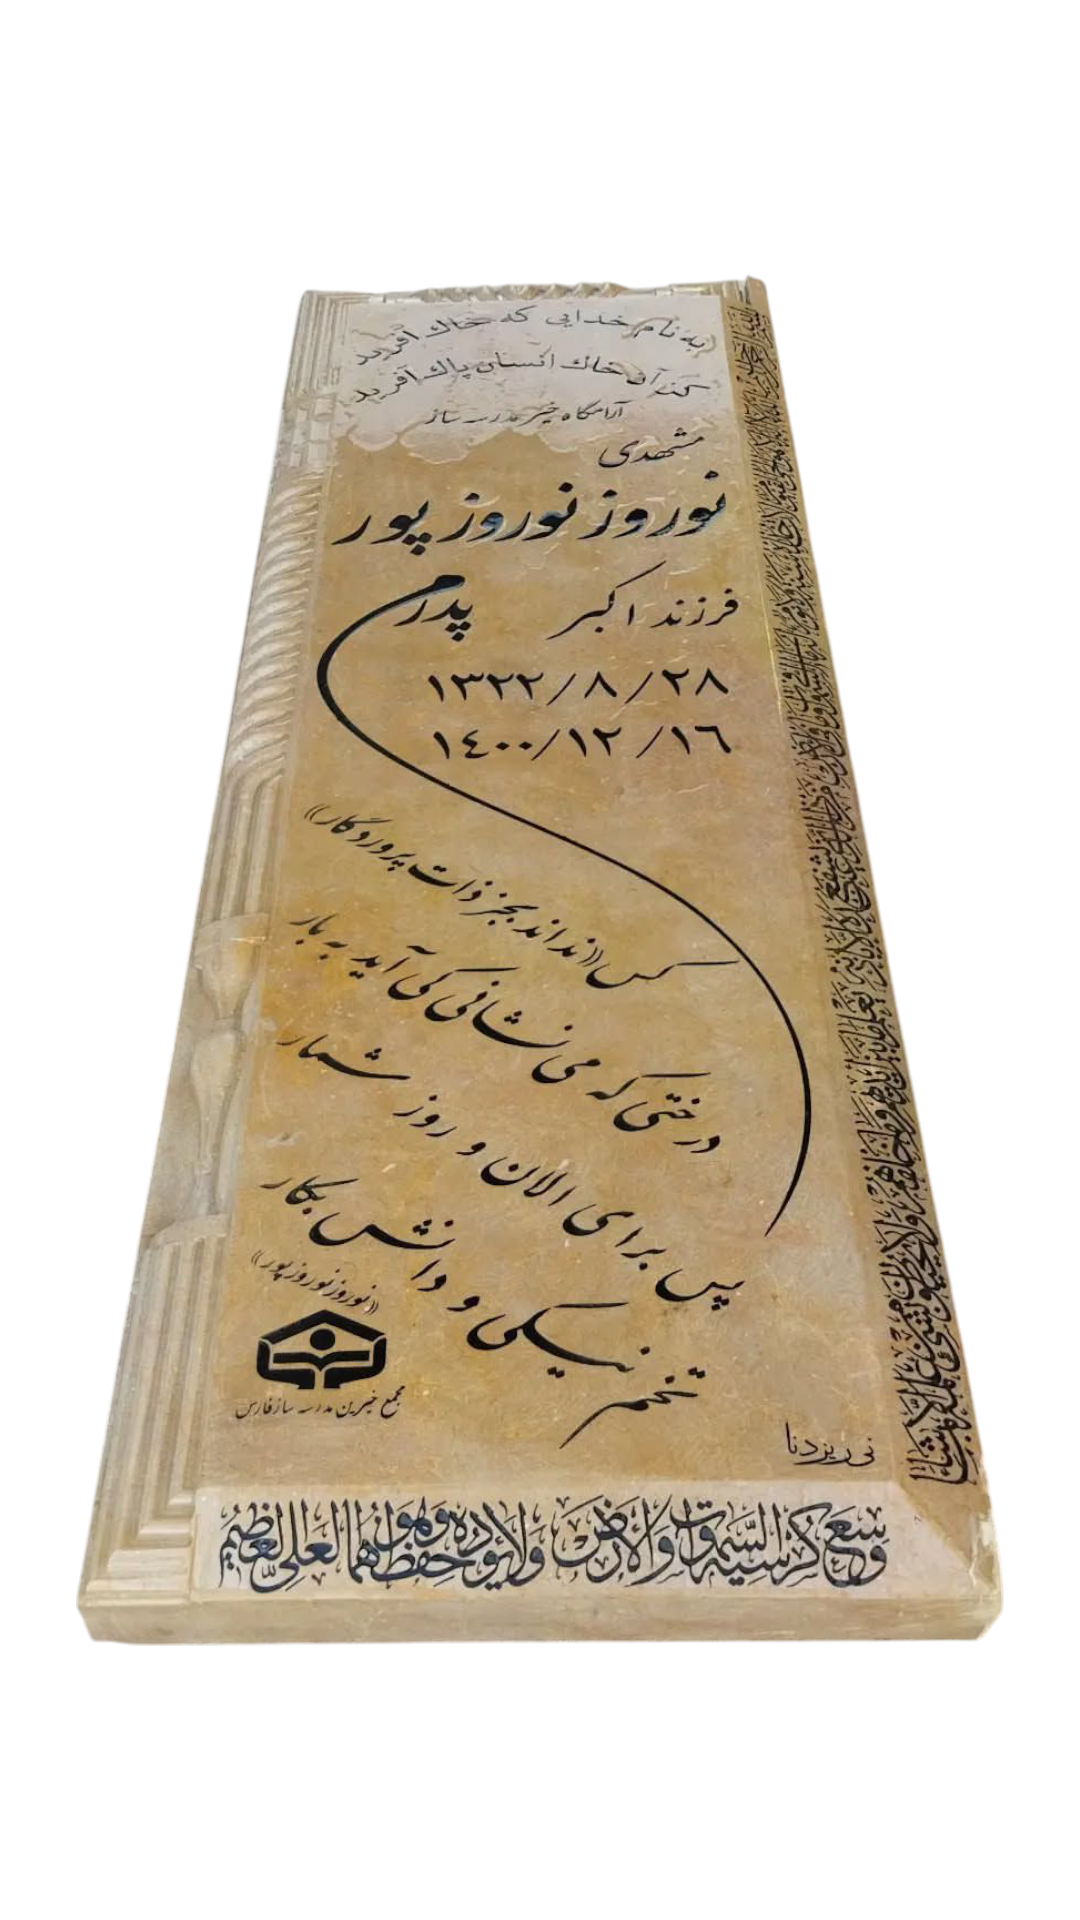 به نام خدایی که خاک آفرید
کز آن خاک انسان پاک آفرید
آرامگاه خیر مدرسه ساز
مشهدی
نوروز نوروز پور
فرزند اکبر
پدرم
۱۳۲۲/۸/۲۸
۱٤۰۰/۱۲/۱٦
کس «نداند بجز ذات پروردگار»
درختی که می نشانی کی آید به بار
پس برای الان و روز شمار
تخم نیکی و دانش بکار
«نوروز نوروز پور»
مجمع خیرین مدرسه ساز فارس
نی ریز دنا
وَسِعَ كُرْسِيُّهُ السَّمَوَاتِ وَالْأَرْضَ وَلَا يَؤُدُهُ حِفْظُهُمَا وَهُوَ الْعَلِيُّ الْعَظِيمُ